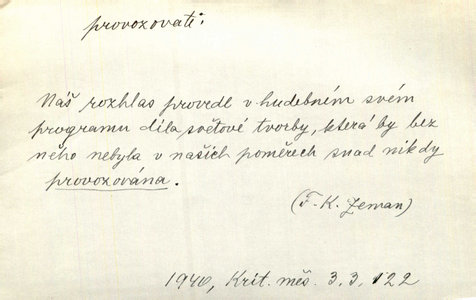 provozovati:
Náš rozhlas provedl v hudebném svém
programu díla světové tvorby, která by bez
něho nebyla v našich poměrech snad nikdy
provozována.
(F. K. Zeman)
1940, Krit. měs. 3, 3, 122